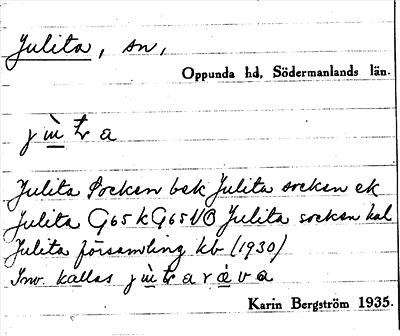 Julita, sn,
Oppunda hd, Södermanlands län.
jùtra
Julita Socken bsk Julita socken ek
Julita G65k G65VÖ Julita socken hal
Julita församling kb (1930)
Inv. kallas jùtraràva
Karin Bergström 1935.